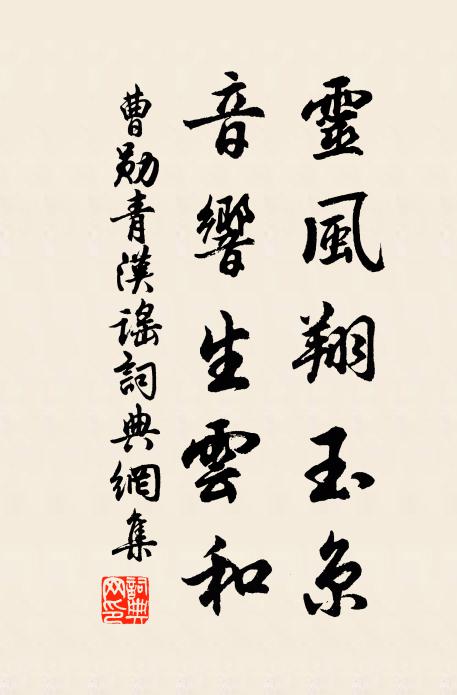 靈風翔玉京
音響生雲和
曹勛青漢謠詞典網集
詞典
网印